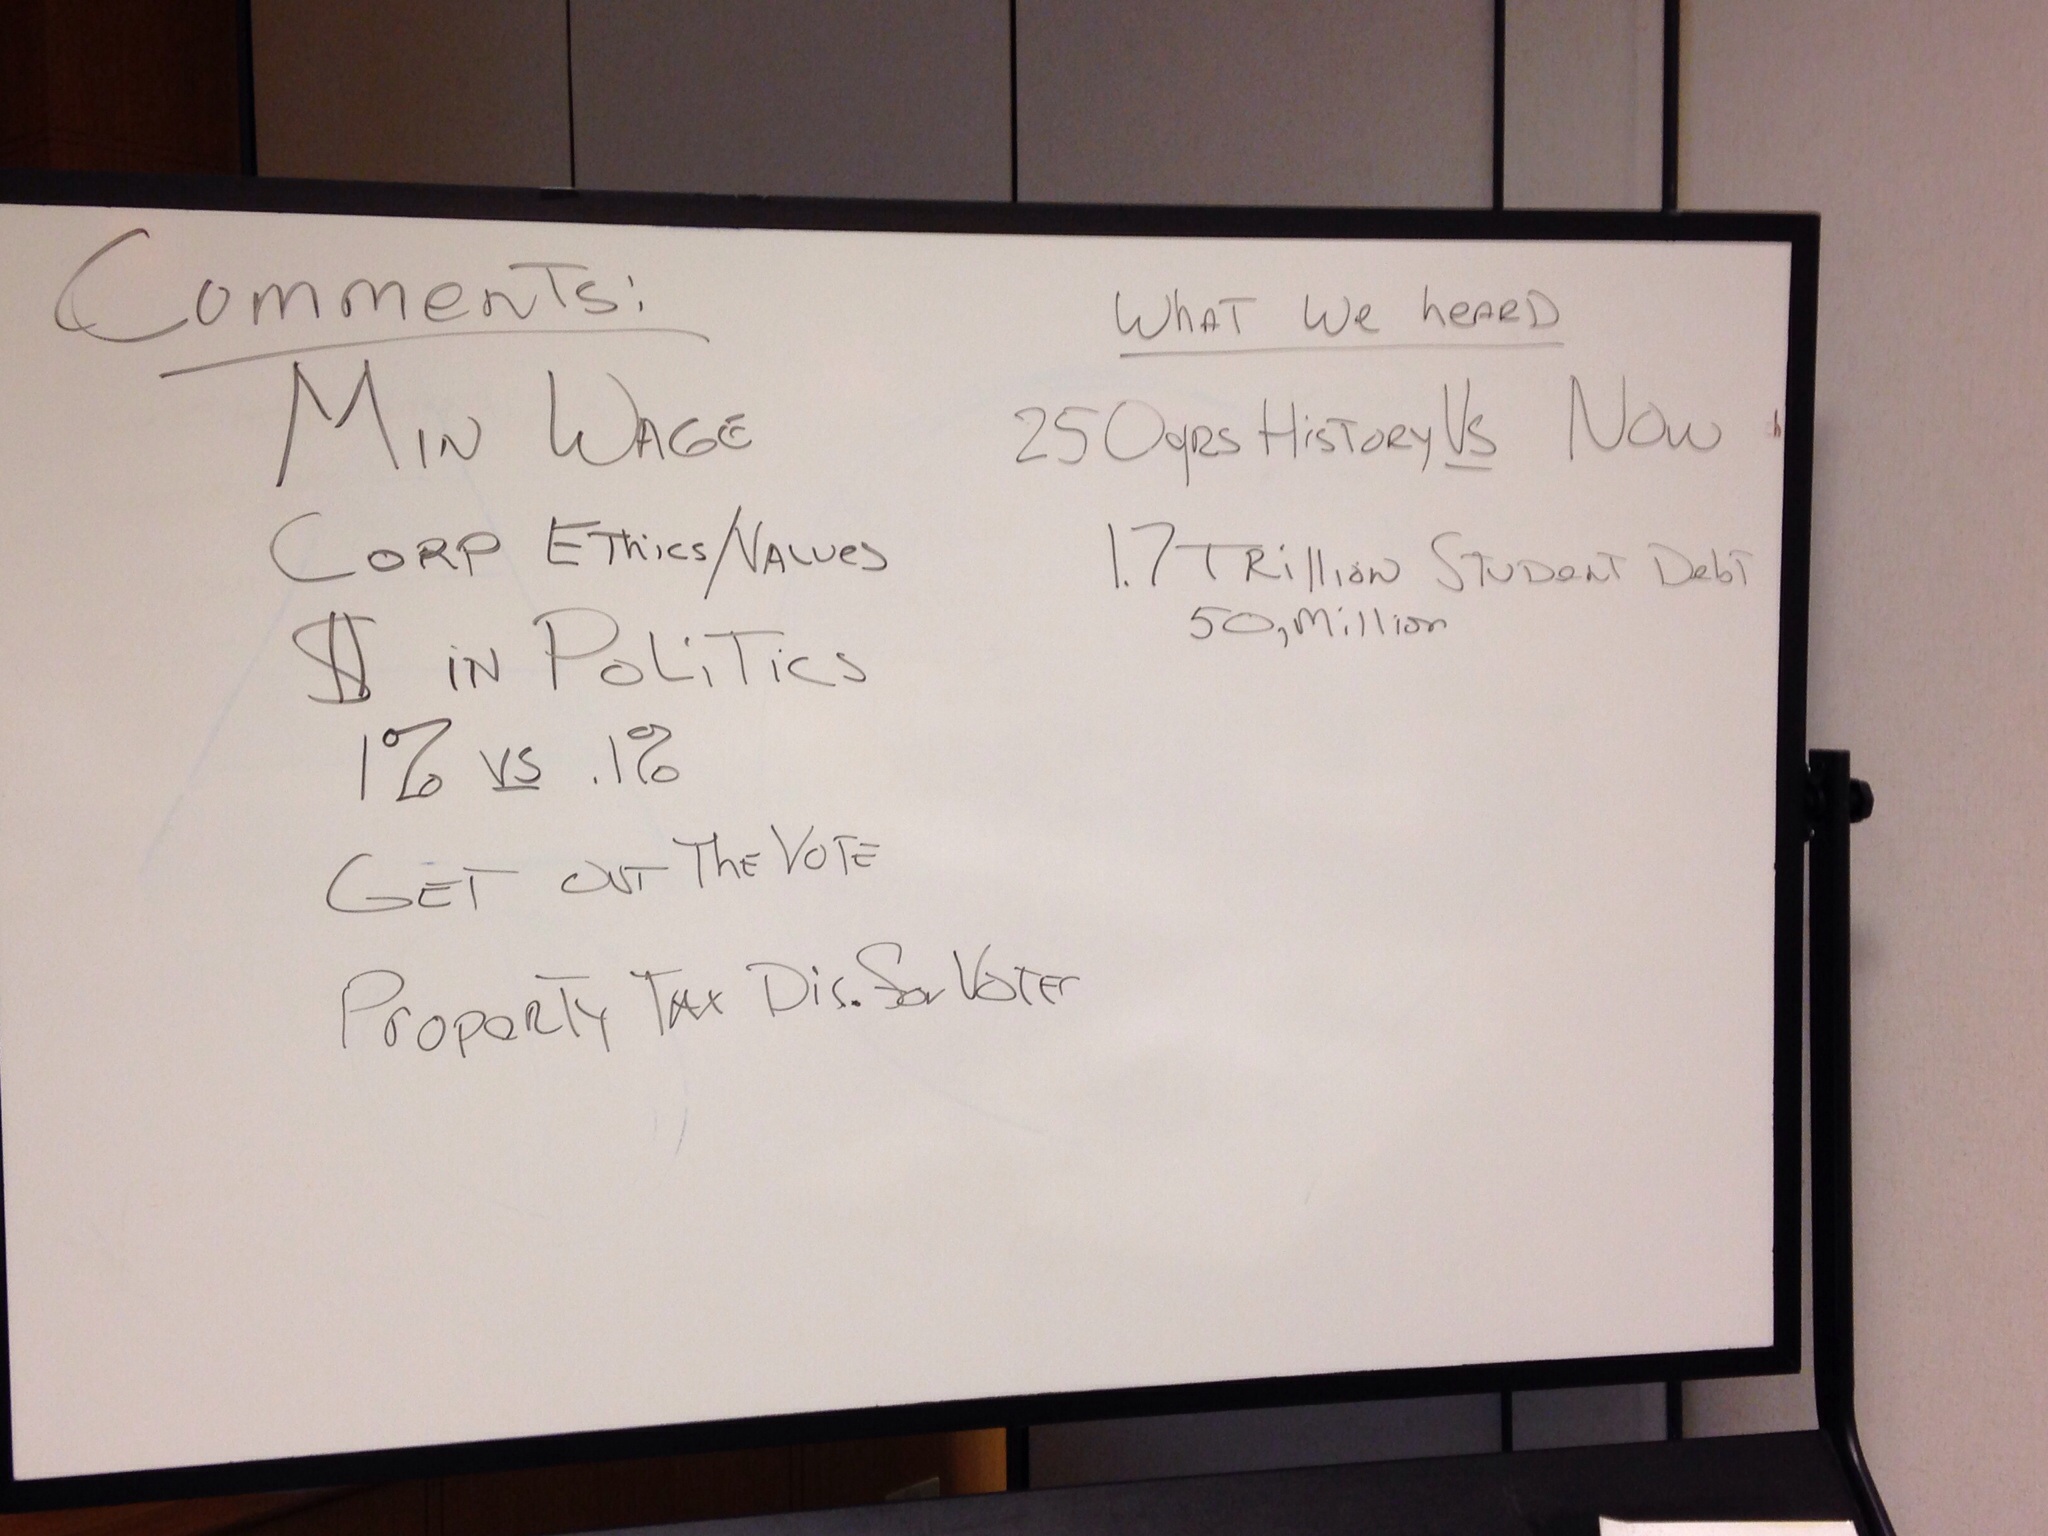 Comments:
Min Wage
Corp Ethics/Values
$ in Politics
1% vs .1%
Get out The Vote
Property Tax Dis. for Voter
What We heard
250yrs History Vs Now
1.7 Trillion Student Debt
50, Million